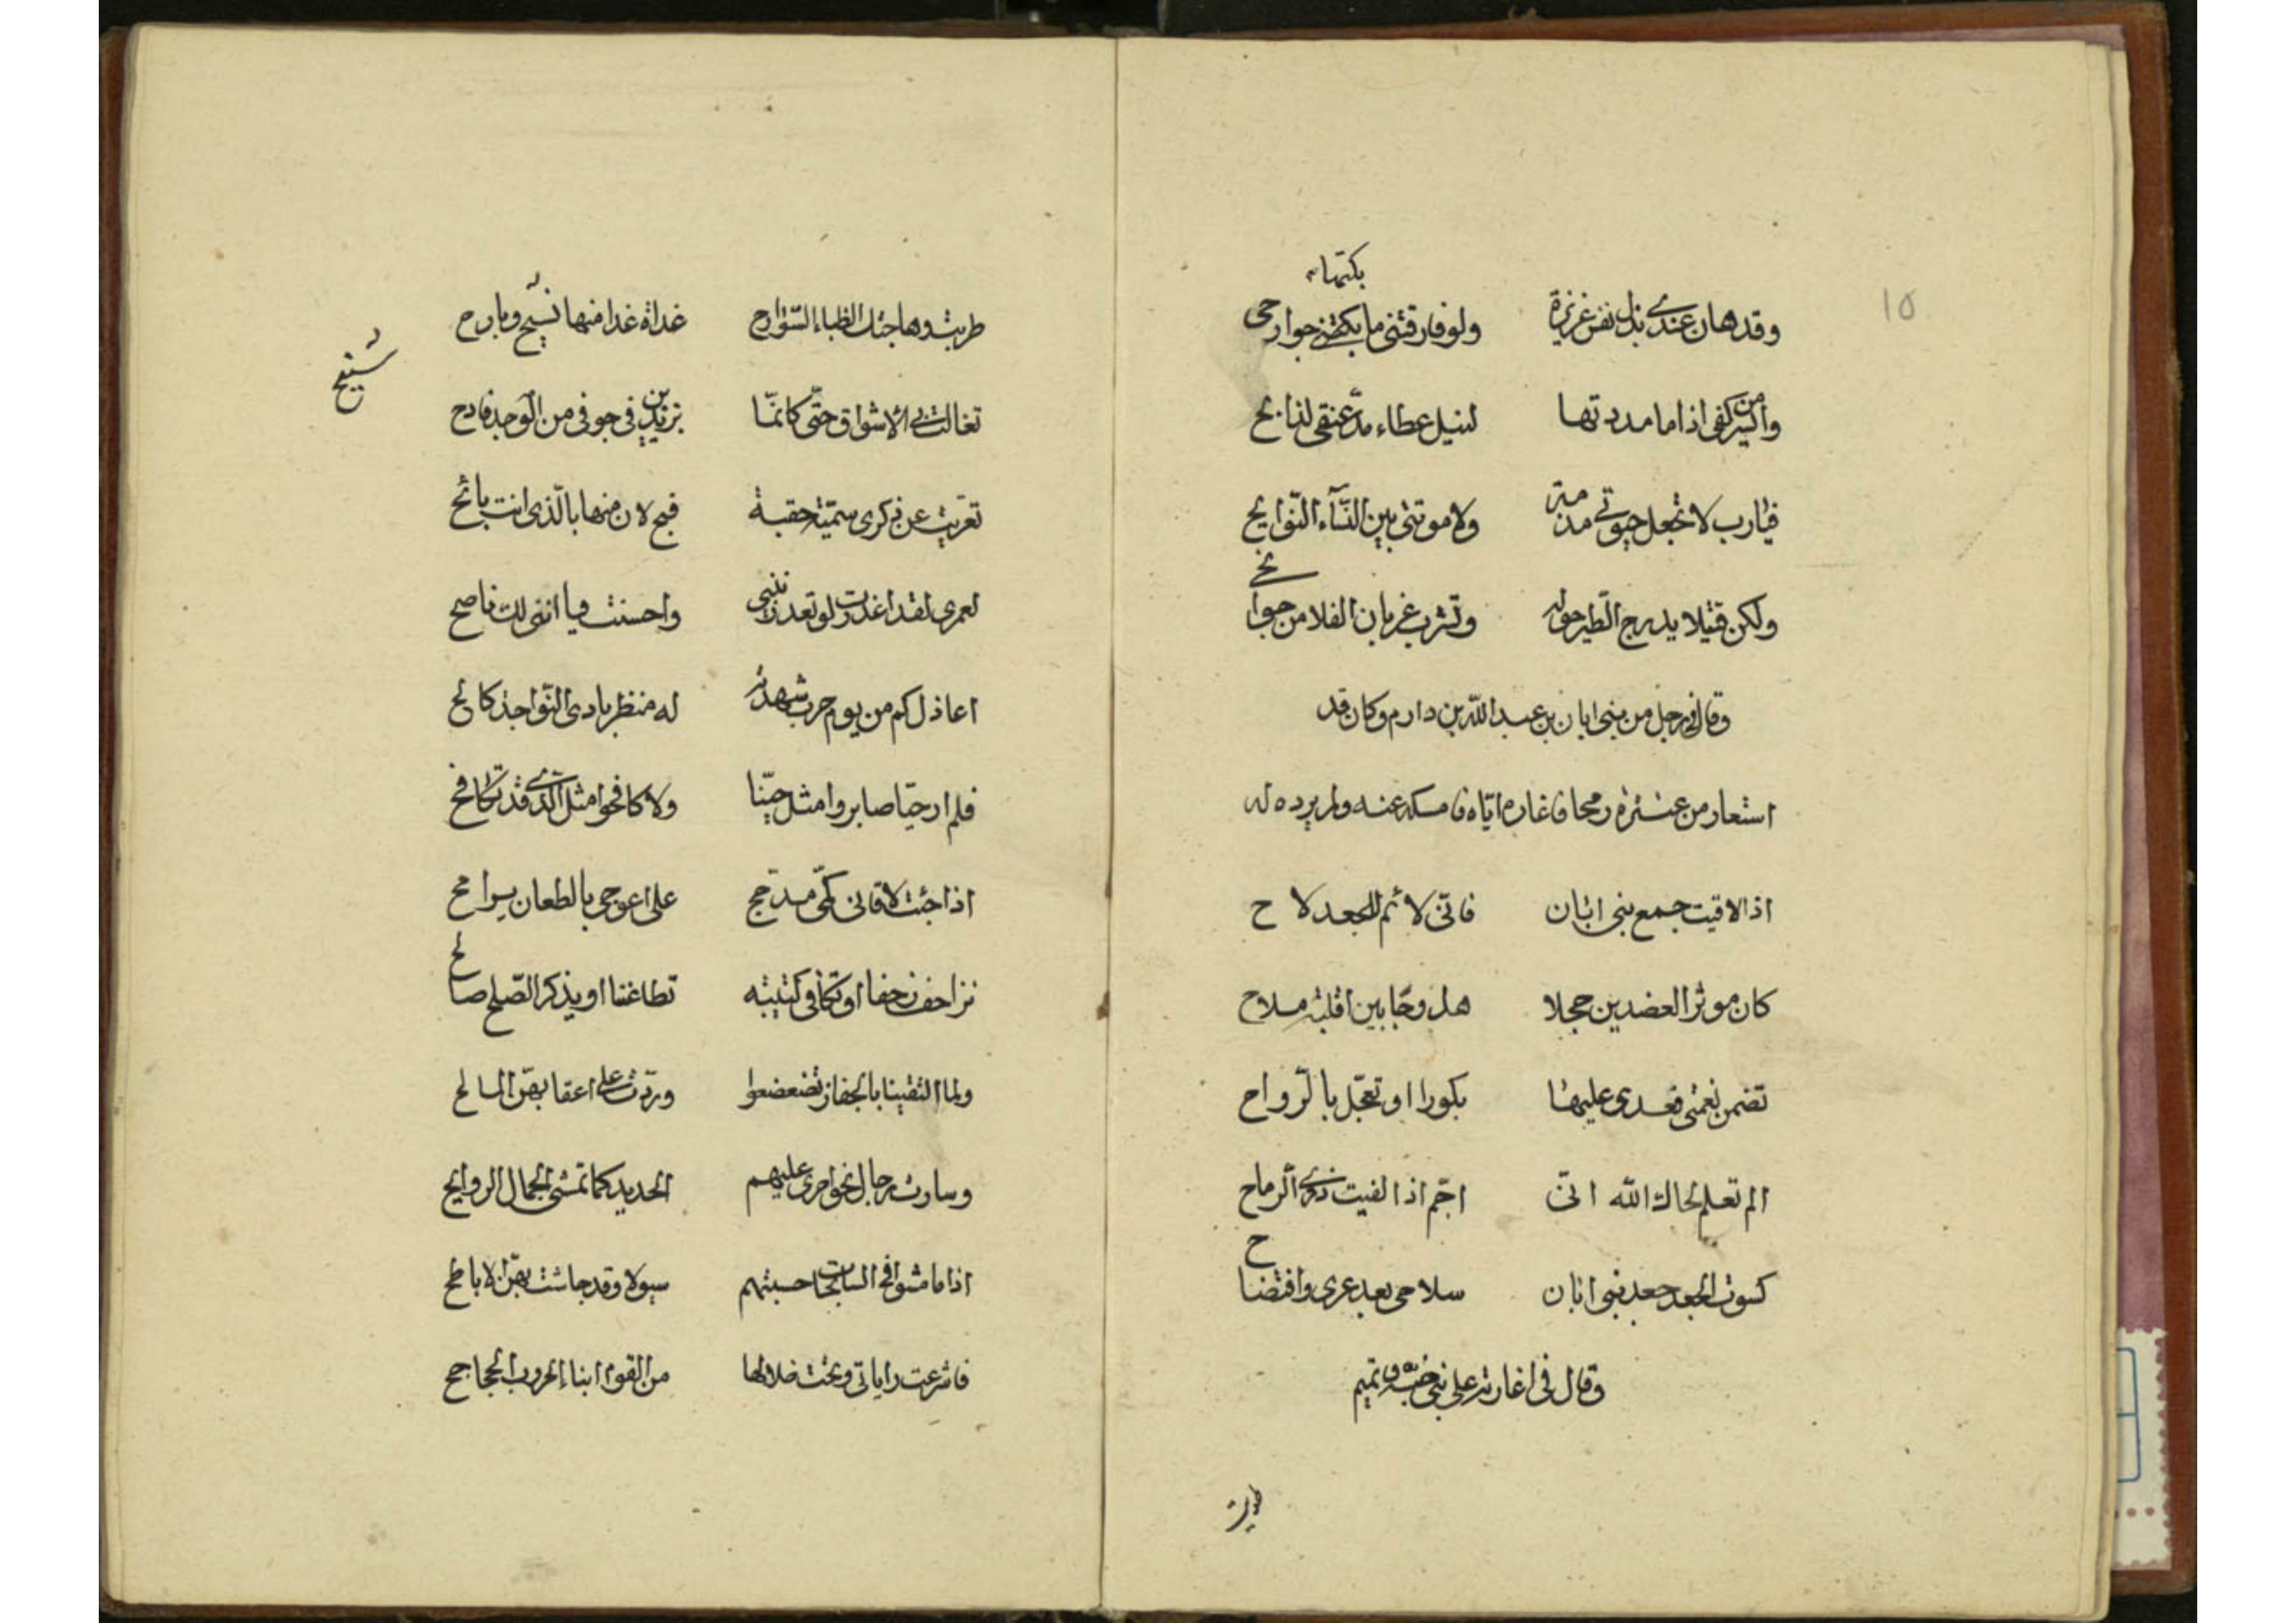 ١٥
بكتها
وقد هان عندي بذل نفس عزيزة ولو فارقتني ما بكتها جوارحي
وايسر من كفي اذا ما مددتها لنيل عطاء مد عنقي لذابح
فيارب لا تجعل حيوتي مذمة ولا موتتي بين النساء النوايح
ولكن قتيلا يدرج الطير حوله وتشرب غربان الفلا من جوانح
وقال في رجل من بني ابان بن عبد الله بن دارم وكان قد
استعار من عنترة رمحا فاغاره اياه فامسكه عنه ولم يرده له
اذا لاقيت جمع بني ابان فانّي لائم للجعد لاح
كان موشر العضدين حجلا هدوجا بين اقلبة ملاح
تضمن نعمتي فغدى عليها بكورا او تعجّل بالرّواح
الم تعلم لحاك الله انّي اجمّ اذا لقيت ذوي الرماح
كسوت الجعد جعد بني ابان سلاحي بعد عري وافتضاح
وقال في اغارته على بني ضبه وتميم
طربت
طربت وهاجتك الظباء السّوارح غداة غدا منها سنيح وبارح
سنيح
تغالت بي الاشواق حتّى كانّما بزندين في جوفي من الوجد قادح
تعزيت عن ذكرى سميّة حقبة فبح لان منها بالّذي انت بائح
لعمري لقد اعذرت لو تعذرينني واحسنت فيا انني لك ناصح
اعاذل كم من يوم حرب شهدته له منظر بادي النّواجذ كالح
فلم ار حيّا صابروا مثل حيّنا ولا كافحوا مثل الّذي قد نكافح
اذا جئت لاقاني كمّي مدجج على اعوجي بالطعان يسرامح
نزاحف زحفا او تكافي كتيبته تطاعننا او يذكر الصّلح صالح
ولما التقينا بالجفار تضعضعوا وردّت على اعقابهنّ المسالح
وسارت رجال نحو اخرى عليهم الحديد كما تمشي الجمال الروايح
اذا ما مشوا في السابحات حسبتهم سيولا وقد جاشت بهنّ الاباطح
فاشرعت راياتي وتحت ظلالها من القوم ابناء الحروب الجحاجح